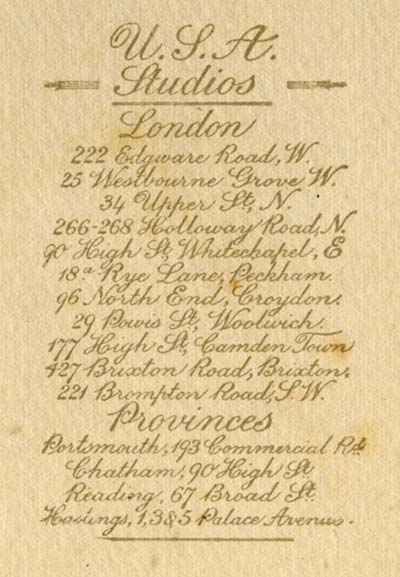 U.S.A.
Studios
London
222 Edgware Road, W.
25 Westbourne Grove W.
34 Upper St, N.
266-268 Holloway Road, N.
90 High St, Whitechapel, E
18.a Rye Lane, Peckham.
96 North End, Croydon.
29 Powis St, Woolwich.
177 High St, Camden Town
427 Brixton Road, Brixton.
221 Brompton Road, S.W.
Provinces
Portsmouth, 193 Commercial Rd.
Chatham, 90 High St
Reading, 67 Broad St.
Hastings, 1, 3 & 5 Palace Avenue.